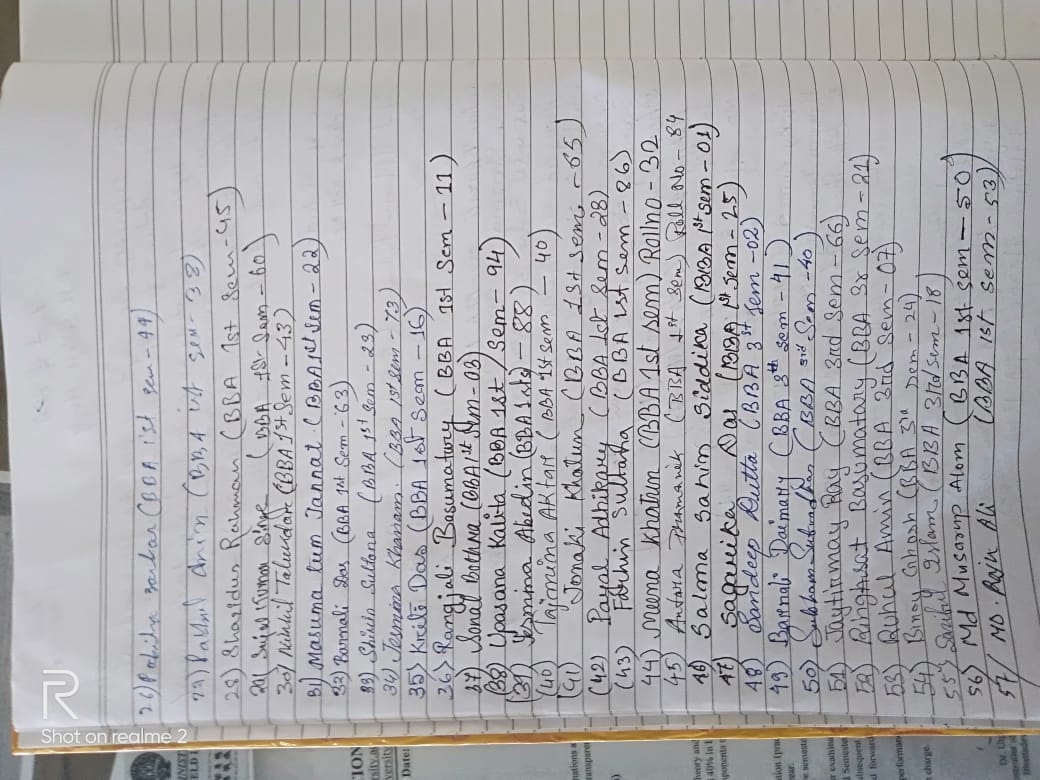 26) Pabitra sarkar (BBA ist sem-44)
27) Rabbul Amin (BBA ist sem-38)
28) Sharidus Rahman (BBA 1st Sem-45)
29) Singh (BBA 1st Sem-60)
30) Nikhil Talukdar (BBA 1st Sem-43)
31) Masuma Kum Jannat. (BBA 1st Sem-22)
32) Barnali Das (BBA 1st Sem-63)
33) Sultana (BBA 1st Sem-23)
34) Jesmina Khanam. (BBA 1st sem-73)
35) Kriti Das (BBA 1st Sem-16)
36) Rangjali Basumatary (BBA 1st Sem-11)
37) Sonali Bothra (BBA 1st Sem-03)
(38) Upasana Kalita (BBA 1st Sem-94)
(39) Jesmina Abedin (BBA 1st)-88)
(40) Tajmina Aktar (BBA 1st sem-40)
(41) Jonaki Khatun (BBA 1st sem-65)
(42) Payal Adhikary (BBA 1st sem-28)
(43) Farhin Sultana (BBA 1st sem-86)
44) Meena Khatun (BBA 1st sem) Rollno-32
45) Antara Pramanik (BBA 1st Sem) Roll No-84
46) Salma Sahin Siddika (BBA 1st sem-01)
47) Sagarika Das (BBA 1st sem-25)
48) Sandeep Dutta (BBA 3st Sem-02)
49) Barnali Daimary (BBA 3th Sem-41)
50) Subham Sutradhar (BBA 3rd Sem-40)
51) Jaytirmay Ray (BBA 3rd Sem-66)
52) Ringhsut Basumatary (BBA 3r Sem-21)
53) Ruhul Amin (BBA 3rd Sem-07)
54) Binoy Ghosh (BBA 3rd Sem-24)
55) Islam (BBA 3rd Sem-18)
56) Md Musarup Alom (BBA 1st sem-50)
57/ MD. Raju Ali (BBA 1st sem-53)
Shot on realme 2